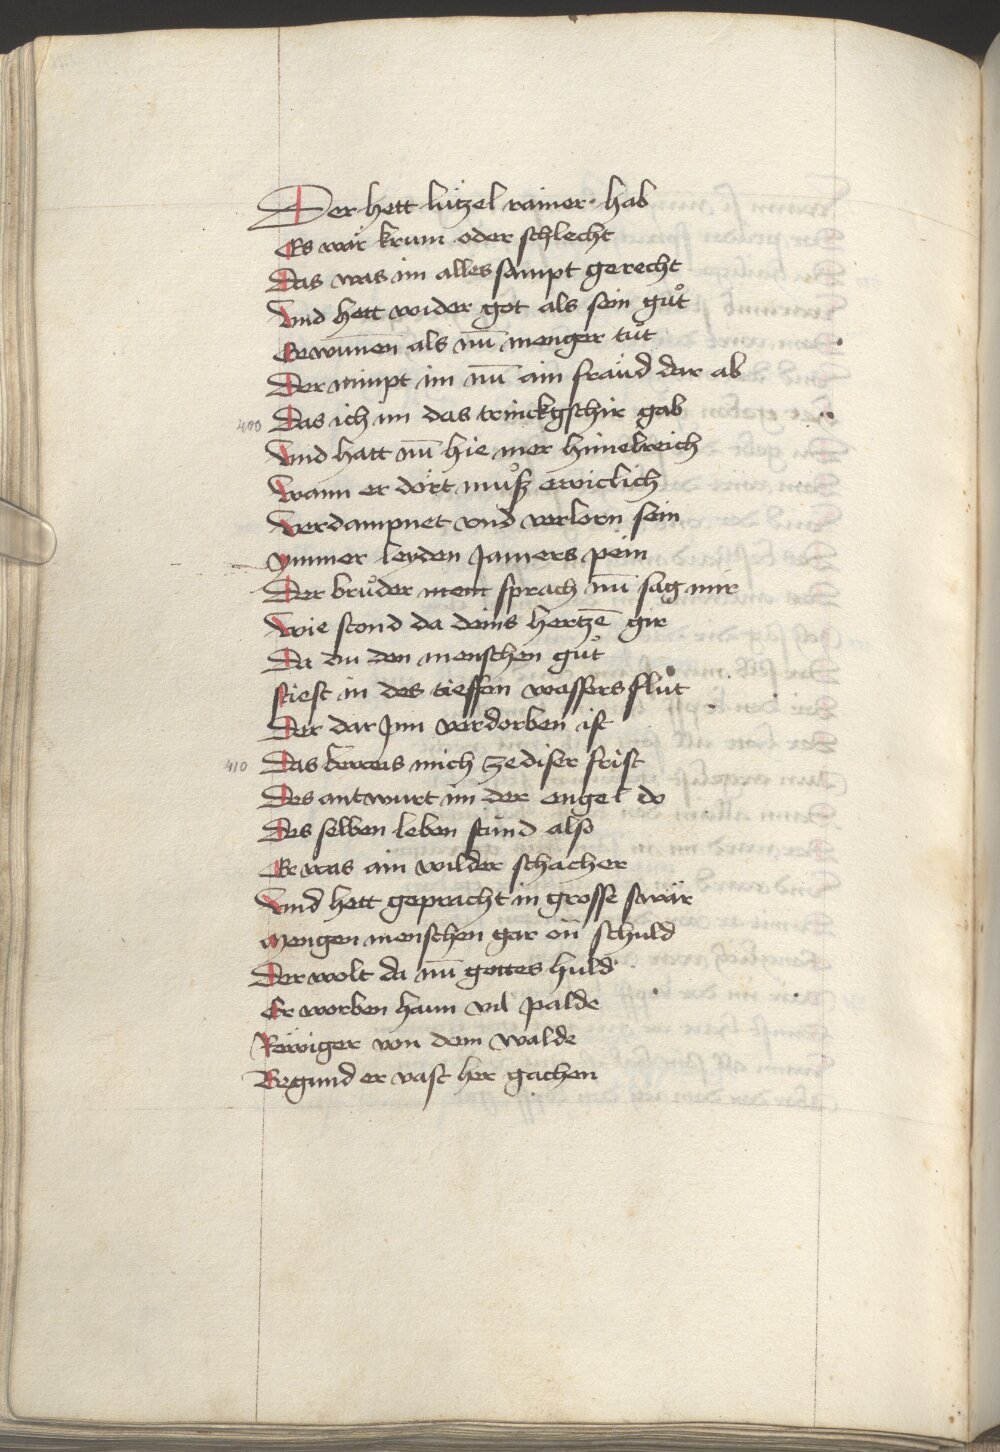 Der hett lützel rainer hab
Es wär krum oder schlecht
Das was im alles sampt gerecht
Vnd hett wider got als sein gůt
Gewunnen als nū menger tůt
Der nimpt im nū ain fräud dar ab
400 Das ich im das trinckgschir gab
Vnd hatt nū hie mer himelreich
Wann er dört můsz ewiclich
Verdampnet vnd verlorn sein
ymmer leyden Jamers pein
Der brůder sprach nū sag mir
Wie stond da deins hertzē gir
Da du den menschen gůt
stiest in des tieffen wassers flůt
Der dar Jnn verdorben ist
410 Das mich ze diser frist
Des antwurt im der engel do
Des selben leben stůnd also
Er was ain wilder schacher
Vnd hett gepracht in grosse swär
Mengen menschen gar on schuld
Der wolt da nū gottes huld
Er worben haun vil palde
Rewiger von dem walde
Begund er vast her gachen